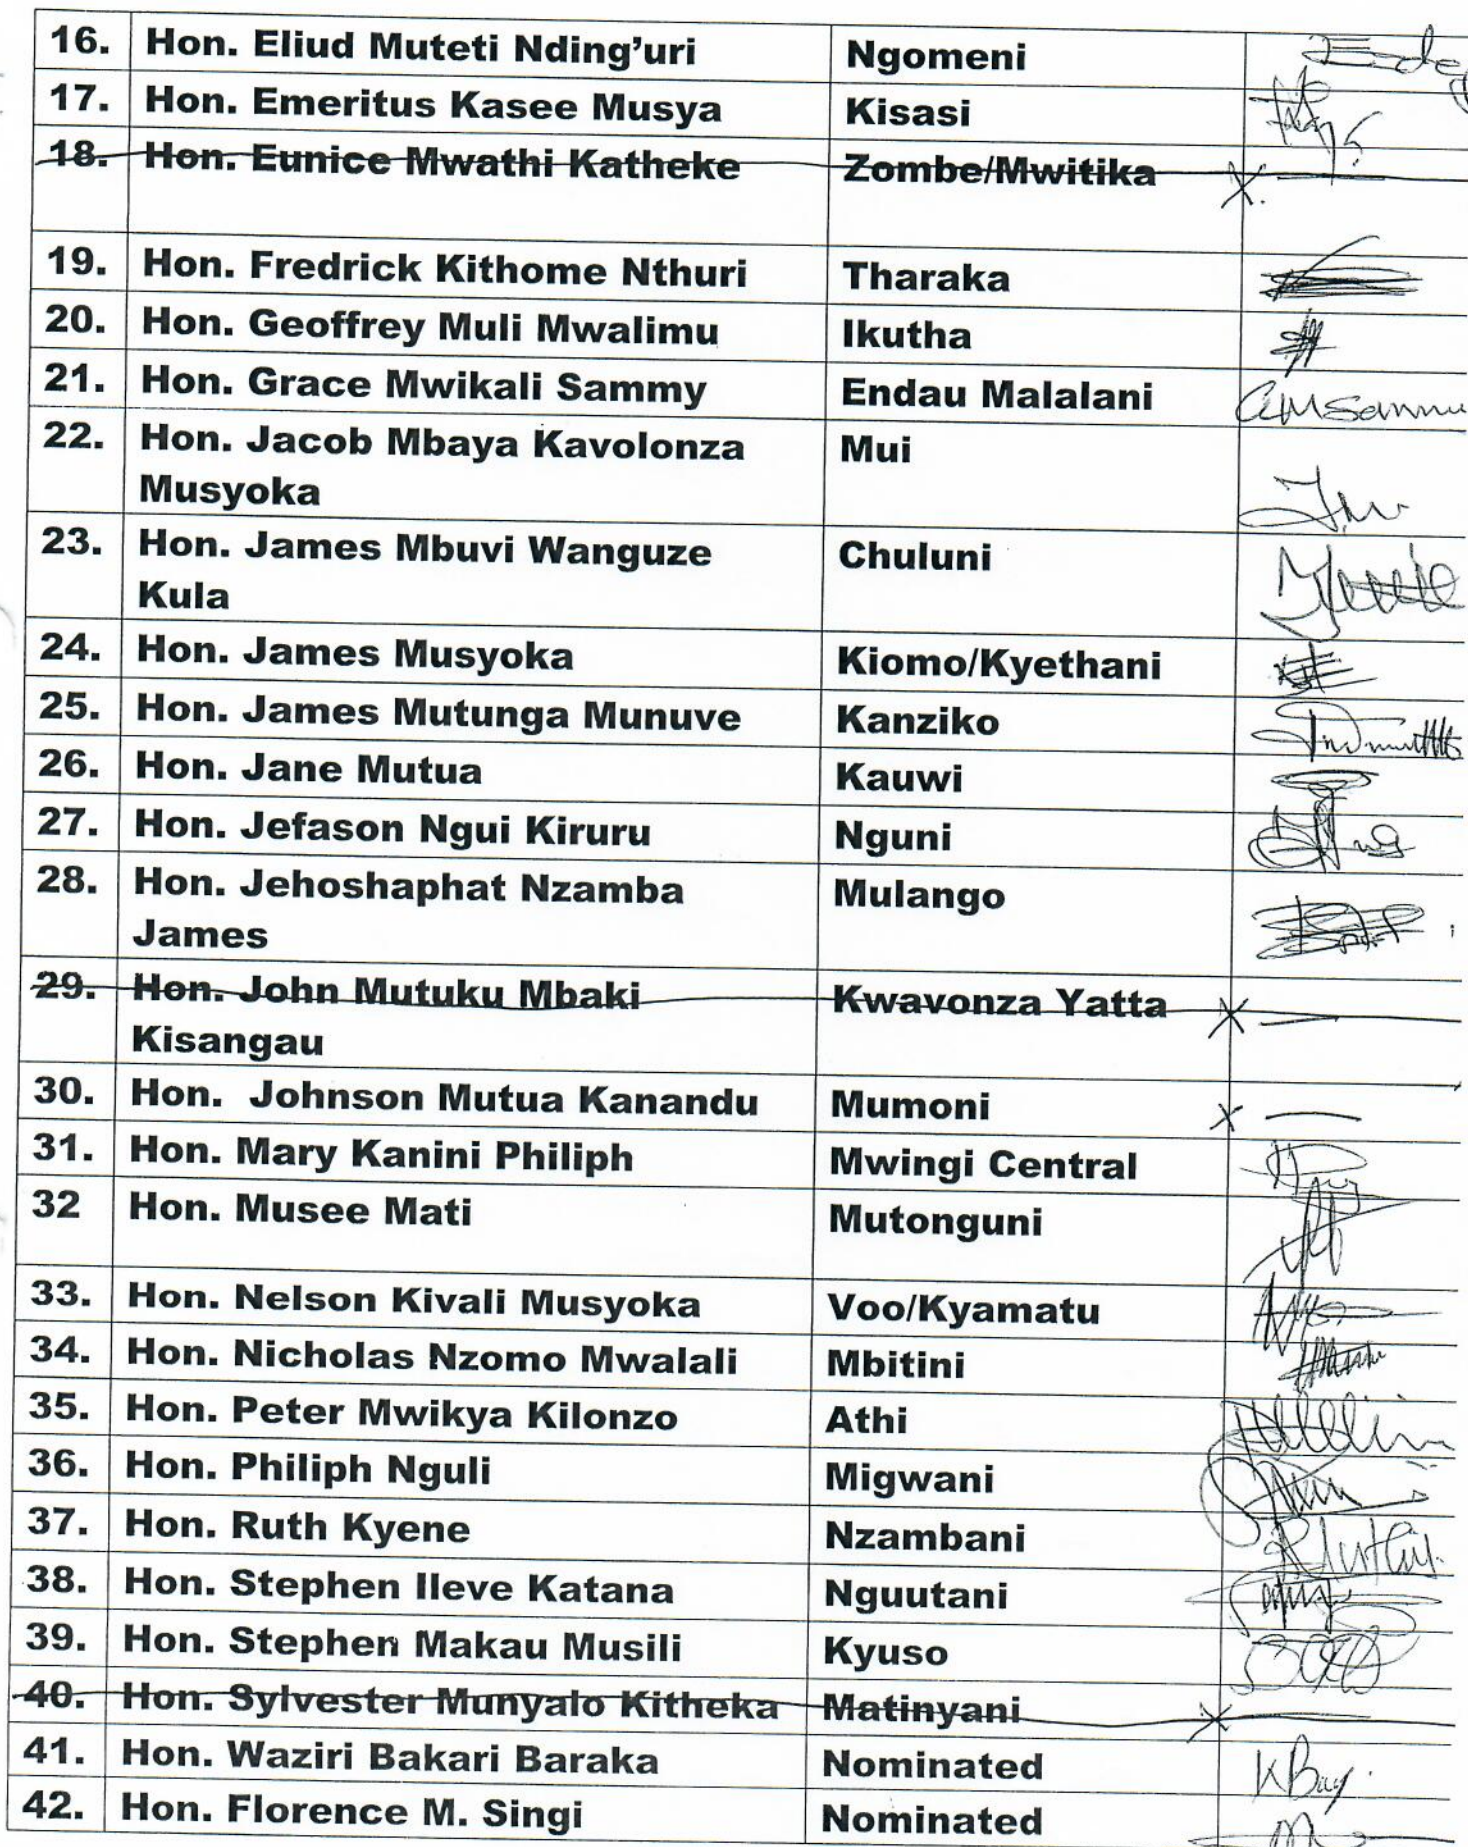 16. Hon. Eliud Muteti Nding'uri Ngomeni
17. Hon. Emeritus Kasee Musya Kisasi
18. Hon. Eunice Mwathi Katheke Zombe/Mwitika X.
19. Hon. Fredrick Kithome Nthuri Tharaka
20. Hon. Geoffrey Muli Mwalimu Ikutha
21. Hon. Grace Mwikali Sammy Endau Malalani
22. Hon. Jacob Mbaya Kavolonza Mui
Musyoka
23. Hon. James Mbuvi Wanguze Chuluni
Kula
24. Hon. James Musyoka Kiomo/Kyethani
25. Hon. James Mutunga Munuve Kanziko
26. Hon. Jane Mutua Kauwi
27. Hon. Jefason Ngui Kiruru Nguni
28. Hon. Jehoshaphat Nzamba Mulango
James
29. Hon. John Mutuku Mbaki Kwavonza Yatta X
Kisangau
30. Hon. Johnson Mutua Kanandu Mumoni X
31. Hon. Mary Kanini Philiph Mwingi Central
32 Hon. Musee Mati Mutonguni
33. Hon. Nelson Kivali Musyoka Voo/Kyamatu
34. Hon. Nicholas Nzomo Mwalali Mbitini
35. Hon. Peter Mwikya Kilonzo Athi
36. Hon. Philiph Nguli Migwani
37. Hon. Ruth Kyene Nzambani
38. Hon. Stephen Ileve Katana Nguutani
39. Hon. Stephen Makau Musili Kyuso
40. Hon. Sylvester Munyalo Kitheka Matinyani X
41. Hon. Waziri Bakari Baraka Nominated
42. Hon. Florence M. Singi Nominated